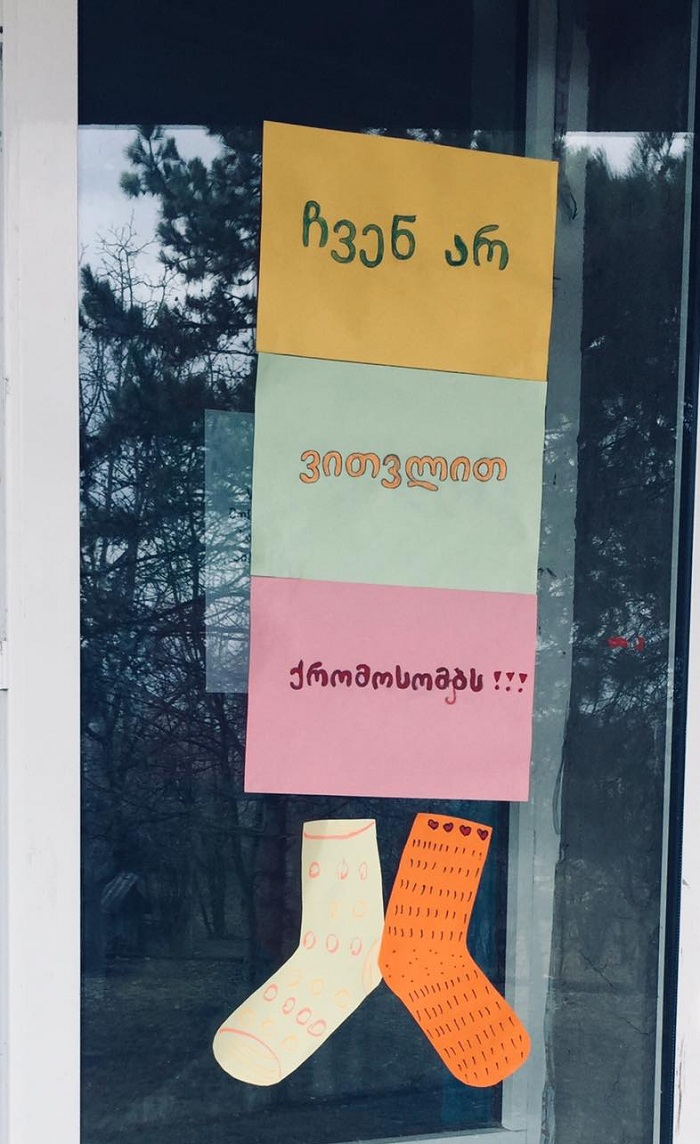 ჩვენ არ
ვითვლით
ქრომოსომებს !!!